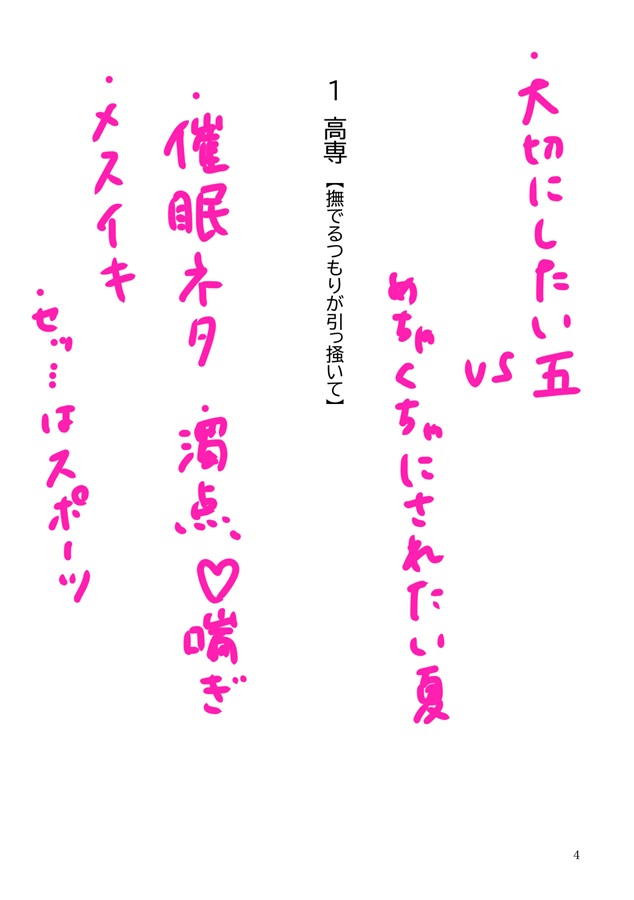 ・大切にしたい五
VS
めちゃくちゃにされたい夏
1 高専【撫でるつもりが引っ掻いて】
・催眠ネタ ・濁点、♡喘ぎ
・メスイキ
・セッ…はスポーツ
4